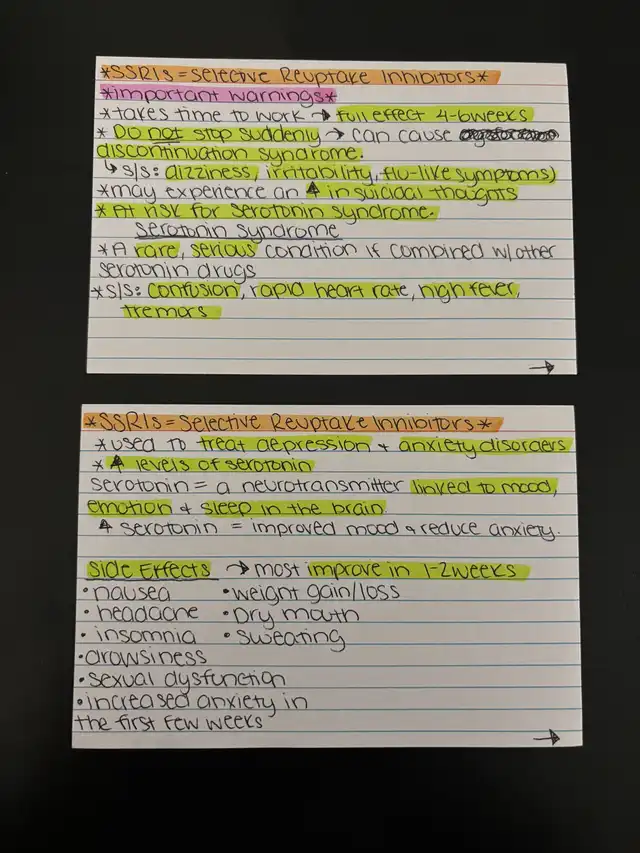 *SSRIs = Selective Reuptake Inhibitors*
*important warnings*
*takes time to work → full effect 4-6weeks
* Do not stop suddenly → can cause
discontinuation syndrome.
↳ S/S: dizziness, irritability, flu-like symptoms)
*may experience an ↑ in suicidal thoughts
*At risk for serotonin syndrome.
Serotonin Syndrome
*A rare, serious condition if combined w/other
serotonin drugs
*S/S: confusion, rapid heart rate, high fever,
tremors
→
*SSRIs = Selective Reuptake Inhibitors*
*used to treat depression & anxiety disorders
*↑ levels of serotonin
serotonin = a neurotransmitter linked to mood,
emotion & sleep in the brain.
↑ serotonin = improved mood & reduce anxiety.
Side Effects → most improve in 1-2weeks
•nausea •weight gain/loss
•headache •Dry mouth
•insomnia •sweating
•drowsiness
•sexual dysfunction
•increased anxiety in
the first few weeks
→